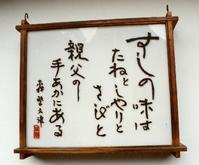 すしの味は
たねとしやりと
さびと
親父の
手あかにある